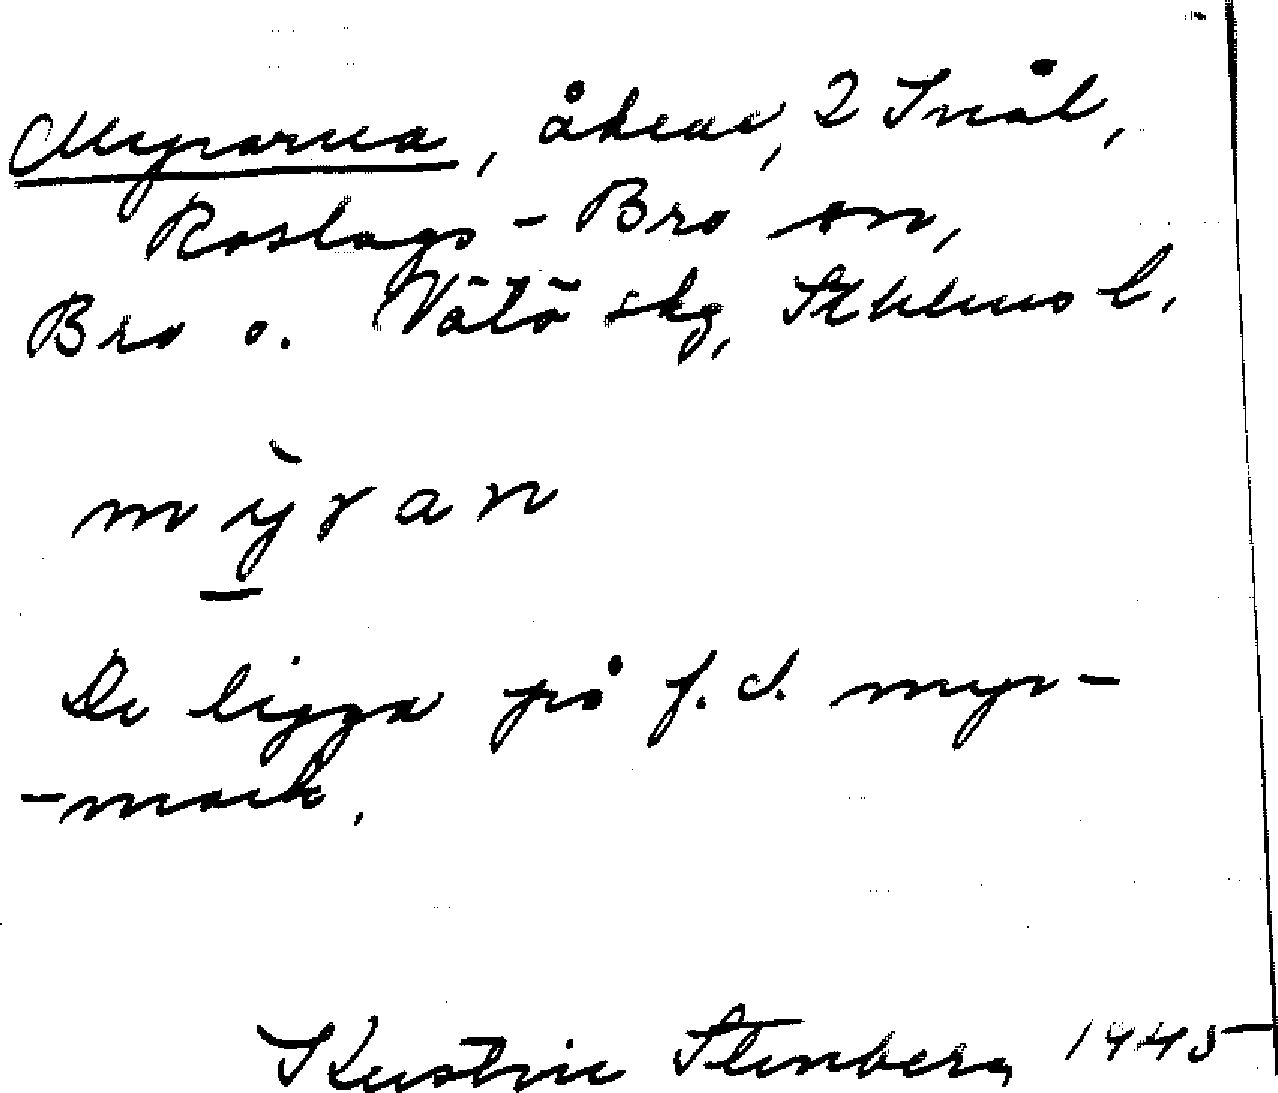 Myrarna, åkrar, 2 Tvål,
Roslags-Bro sn,
Bro o. Vätö skg, Sthlms l.
mỳran
De ligga på f.d. myr-
-mark.
Kerstin Stenberg 1945